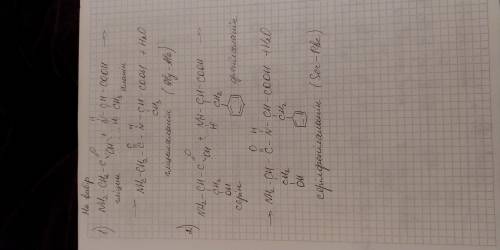 На выбор
1) NH₂-CH₂-C(=O)-OH + H-N(H)-CH(CH₃)-COOH →
глицин аланин
→ NH₂-CH₂-C(=O)-N(H)-CH(CH₃)-COOH + H₂O
глицилаланин (Gly-Ala)
2) NH₂-CH(CH₂-OH)-C(=O)-OH + NH(H)-CH(CH₂)-COOH →
серин фенилаланин
→ NH₂-CH(CH₂-OH)-C(=O)-N(H)-CH(CH₂)-COOH + H₂O
серилфенилаланин (Ser-Phe)